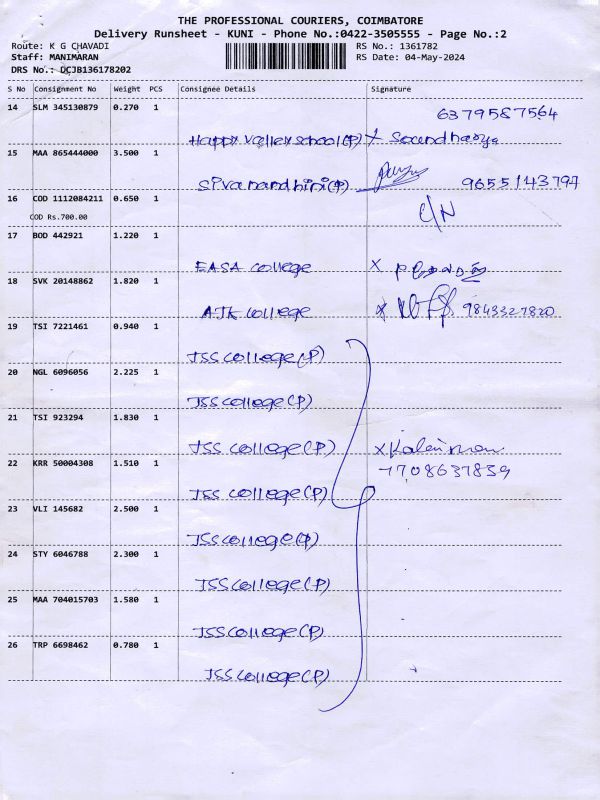 THE PROFESSIONAL COURIERS, COIMBATORE
Delivery Runsheet - KUNI - Phone No.:0422-3505555 - Page No.:2
Route: K G CHAVADI RS No.: 1361782
Staff: MANIMARAN RS Date: 04-May-2024
DRS No.: DCJB136178202
S No Consignment No Weight PCS Consignee Details Signature
14 SLM 345130879 0.270 1 6379587564
Happy valley school(P) x
15 MAA 865444000 3.500 1
Sivanandhini(P) 9655143797
16 COD 1112084211 0.650 1 C/N
COD Rs.700.00
17 BOD 442921 1.220 1
EASA college x
18 SVK 20148862 1.820 1
AJK college x 9843327820
19 TSI 7221461 0.940 1
JSS college(P)
20 NGL 6096056 2.225 1
JSS college(P)
21 TSI 923294 1.830 1
JSS college(P) x
22 KRR 50004308 1.510 1 7708637839
JSS college(P)
23 VLI 145682 2.500 1
JSS college(P)
24 STY 6046788 2.300 1
JSS college(P)
25 MAA 704015703 1.580 1
JSS college(P)
26 TRP 6698462 0.780 1
JSS college(P)